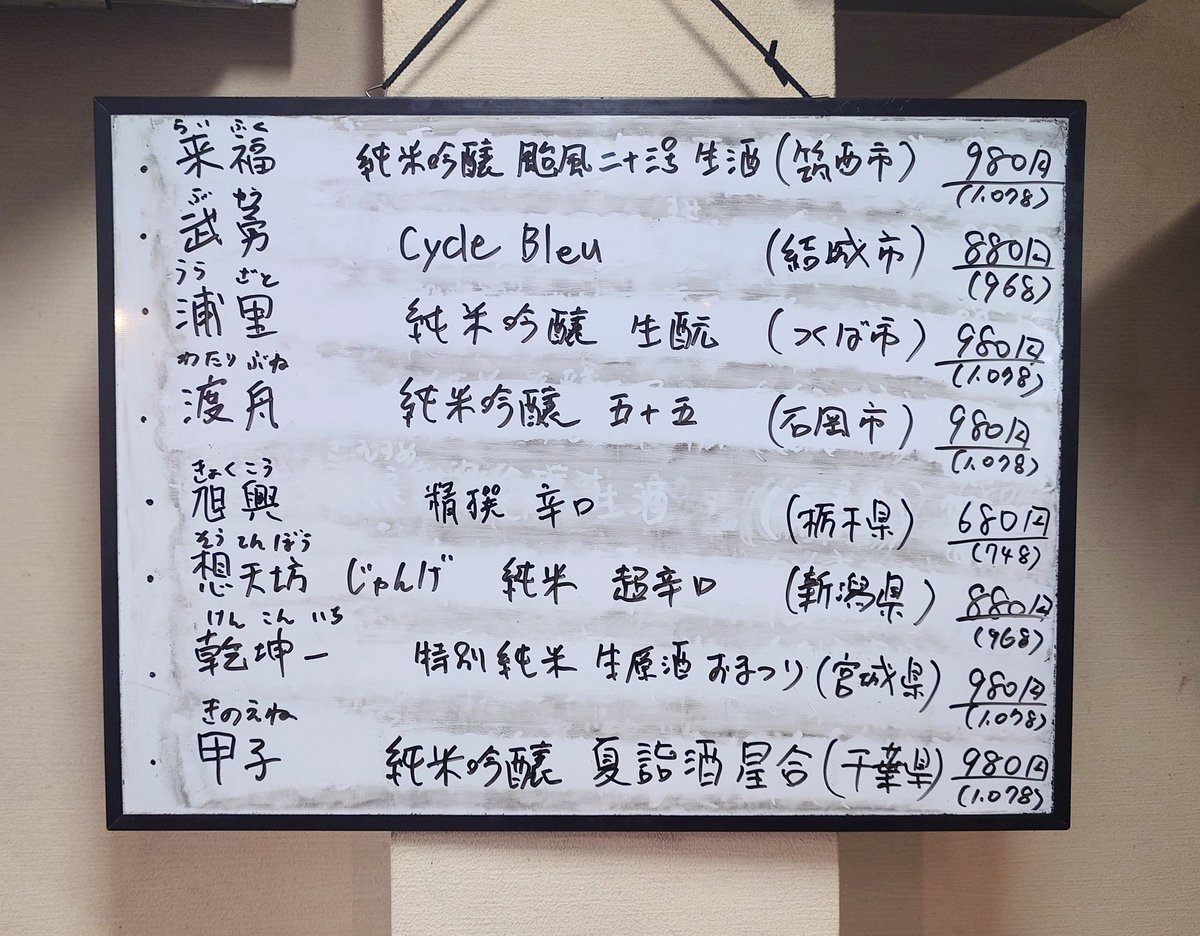 らいふく
・来福 純米吟醸 颱風二十三号 生酒 (筑西市) 980円
(1.078)
ぶゆう
・武勇 Cycle Bleu (結城市) 880円
(968)
うらざと
・浦里 純米吟醸 生酛 (つくば市) 980円
(1.078)
わたりぶね
・渡舟 純米吟醸 五十五 (石岡市) 980円
(1.078)
きょくこう
・旭興 精撰 辛口 (栃木県) 680円
(748)
そうてんぼう
・想天坊 じゃんげ 純米 超辛口 (新潟県) 880円
(968)
けんこんいち
・乾坤一 特別純米 生原酒 おまつり (宮城県) 980円
(1.078)
きのえね
・甲子 純米吟醸 夏詣酒 星合 (千葉県) 980円
(1.078)